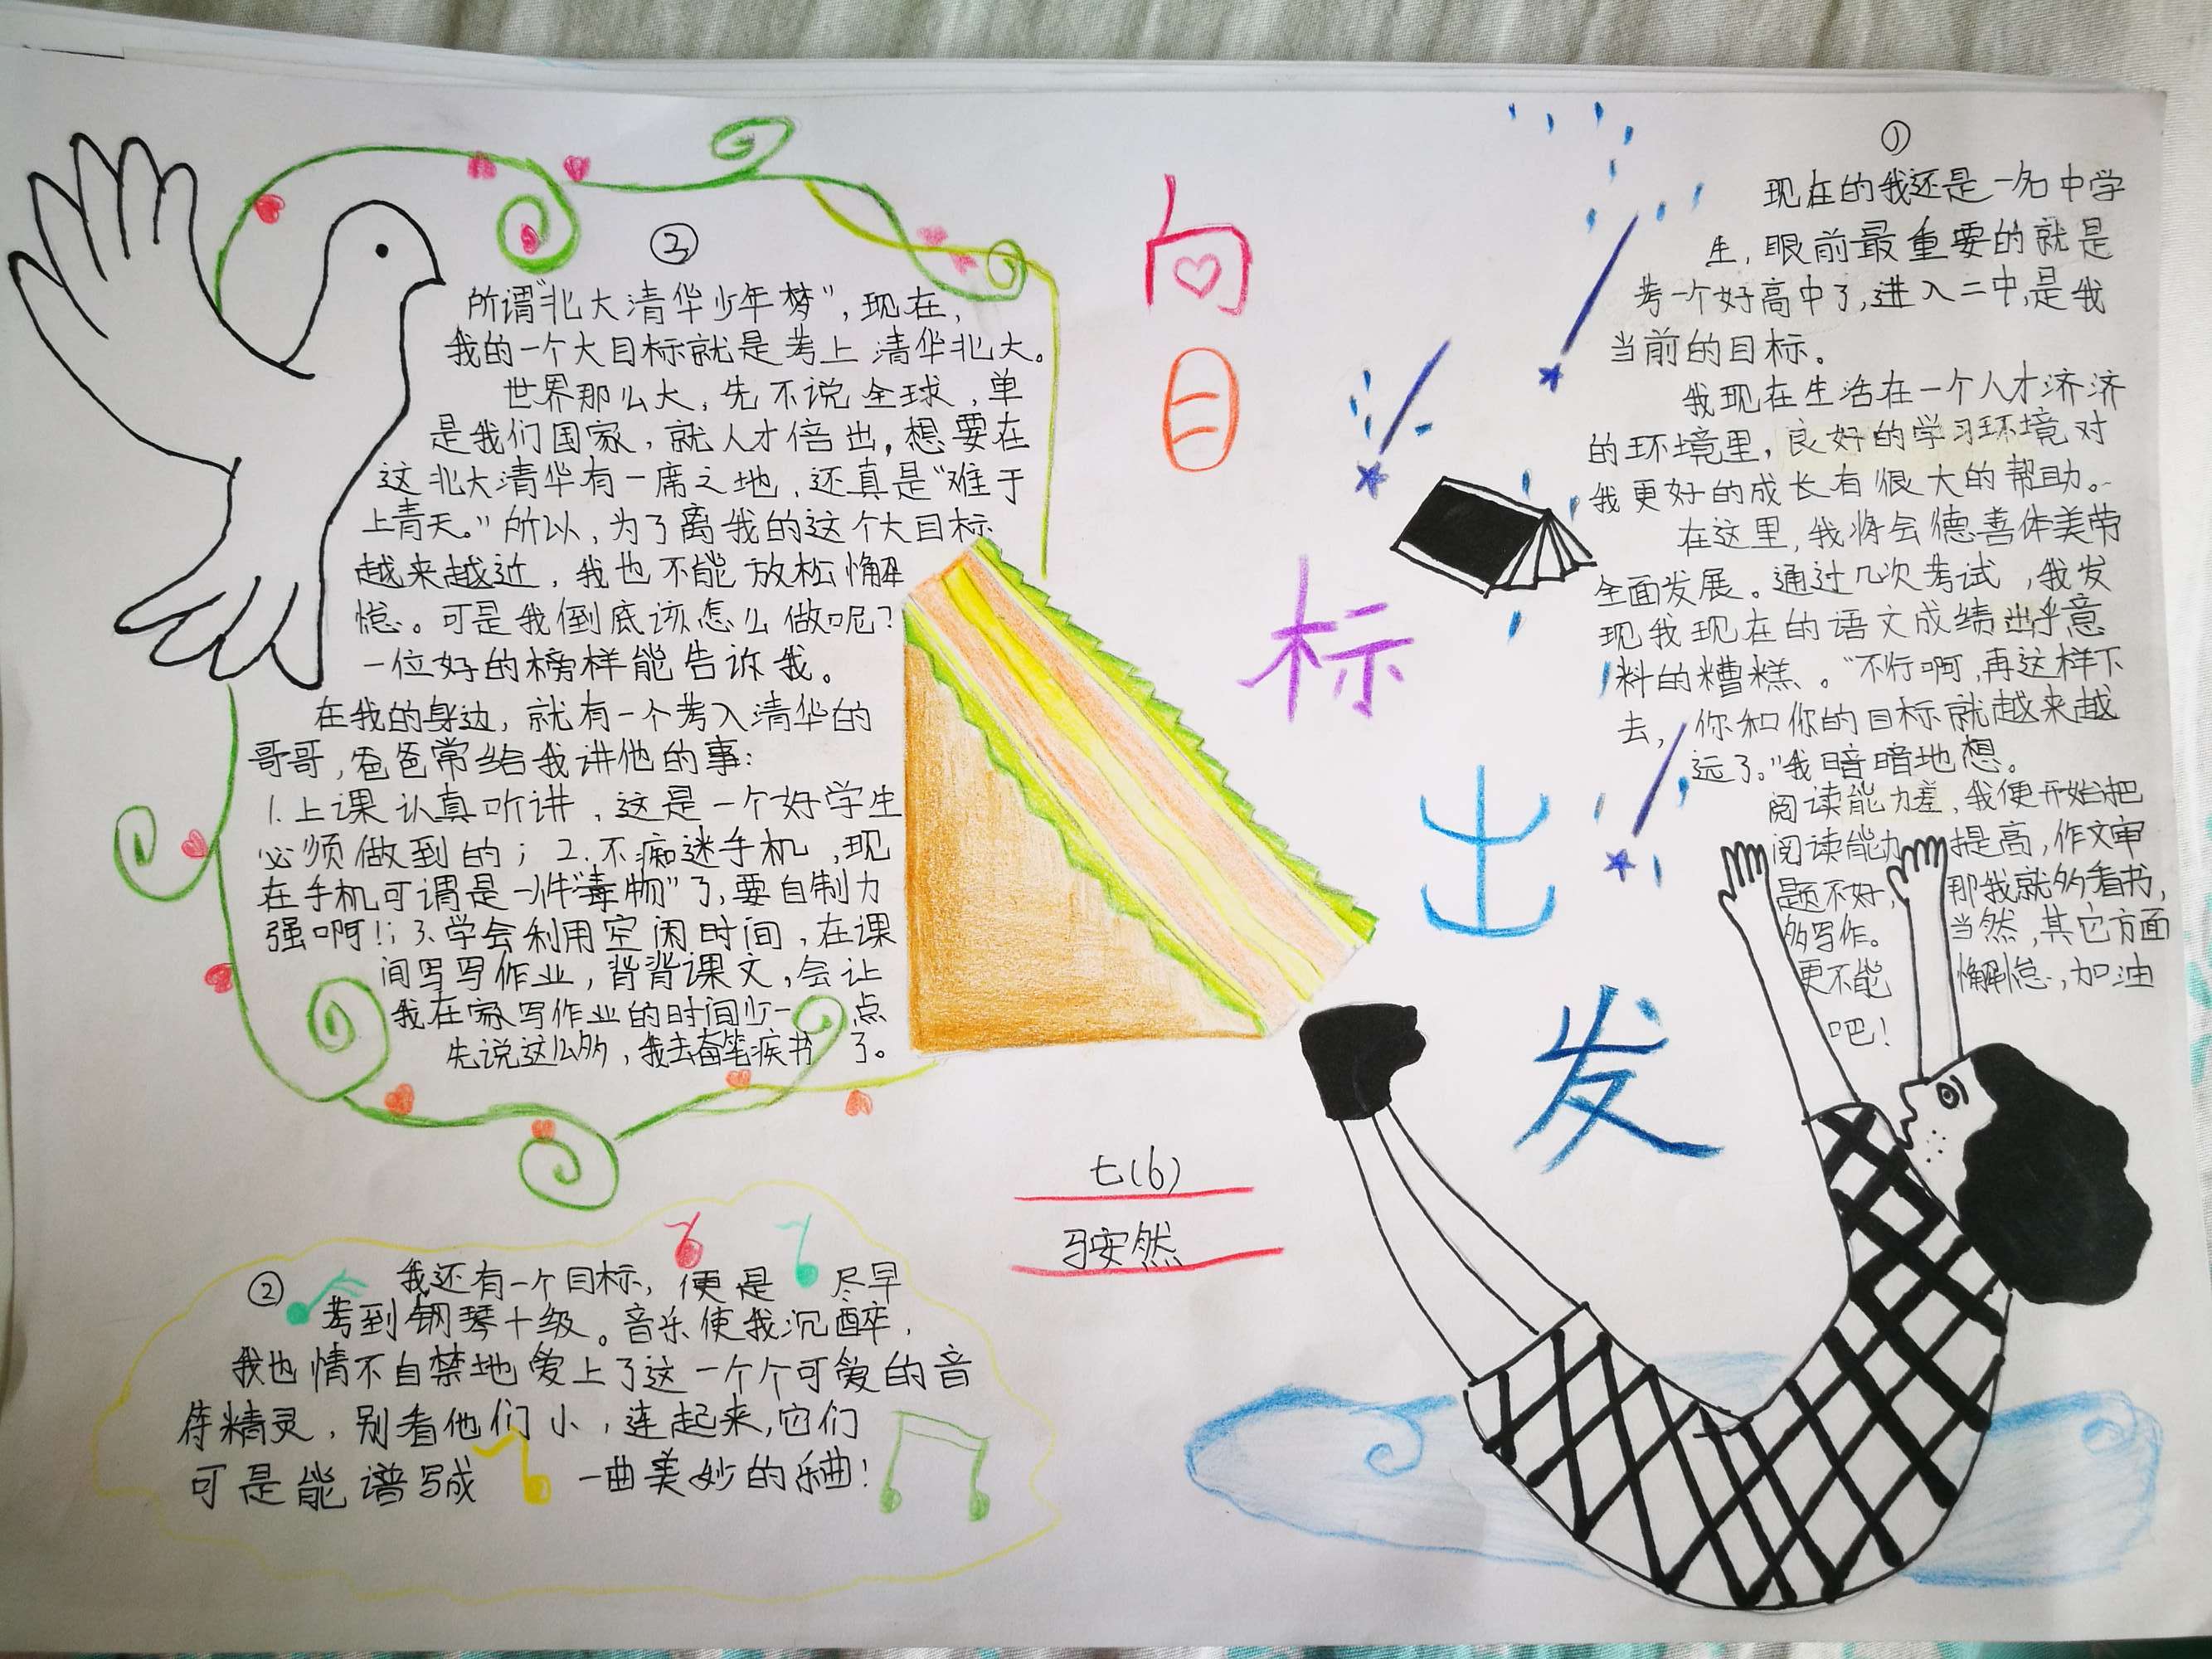 向目标出发
①
现在的我还是一名中学
生,眼前最重要的就是
考一个好高中了,进入二中,是我
当前的目标。
我现在生活在一个人才济济
的环境里,良好的学习环境对
我更好的成长有很大的帮助。
在这里,我将会德善体美劳
全面发展。通过几次考试,我发
现我现在的语文成绩出乎意
料的糟糕。“不行啊,再这样下
去,你和你的目标就越来越
远了。”我暗暗地想。
阅读能力差,我便开始把
阅读能力提高,作文审
题不好,那我就多看书,
多写作。当然,其它方面
更不能懈怠,加油
吧!
②
我还有一个目标,便是尽早
考到钢琴十级。音乐使我沉醉,
我也情不自禁地爱上了这一个个可爱的音
符精灵,别看他们小,连起来,它们
可是能谱写成一曲美妙的乐曲!
③
所谓“北大清华少年梦”,现在,
我的一个大目标就是考上清华北大。
世界那么大,先不说全球,单
是我们国家,就人才倍出,想要在
这北大清华有一席之地,还真是“难于
上青天。”所以,为了离我的这个大目标
越来越近,我也不能放松懈
怠。可是我到底该怎么做呢?
一位好的榜样能告诉我。
在我的身边,就有一个考入清华的
哥哥,爸爸常给我讲他的事:
1.上课认真听讲,这是一个好学生
必须做到的;2.不痴迷手机,现
在手机可谓是一件“毒物”了,要自制力
强啊!;3.学会利用空闲时间,在课
间写写作业,背背课文,会让
我在家写作业的时间少一点
先说这么多,我去奋笔疾书了。
七(6)
安然